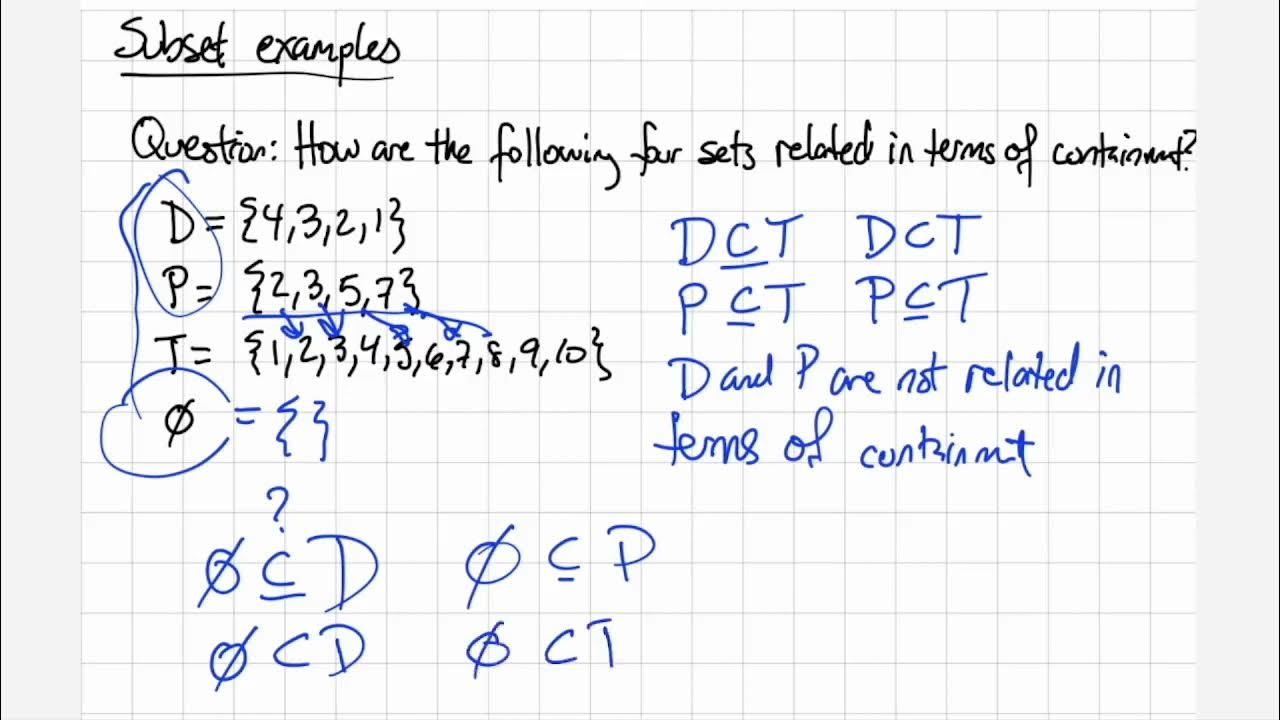 Subset examples
Question: How are the following four sets related in terms of containment?
D = {4,3,2,1}
P = {2,3,5,7}
T = {1,2,3,4,5,6,7,8,9,10}
∅ = { }
D ⊆ T D ⊂ T
P ⊆ T P ⊆ T
D and P are not related in
terms of containment
?
∅ ⊆ D ∅ ⊆ P
∅ ⊂ D ∅ ⊂ T